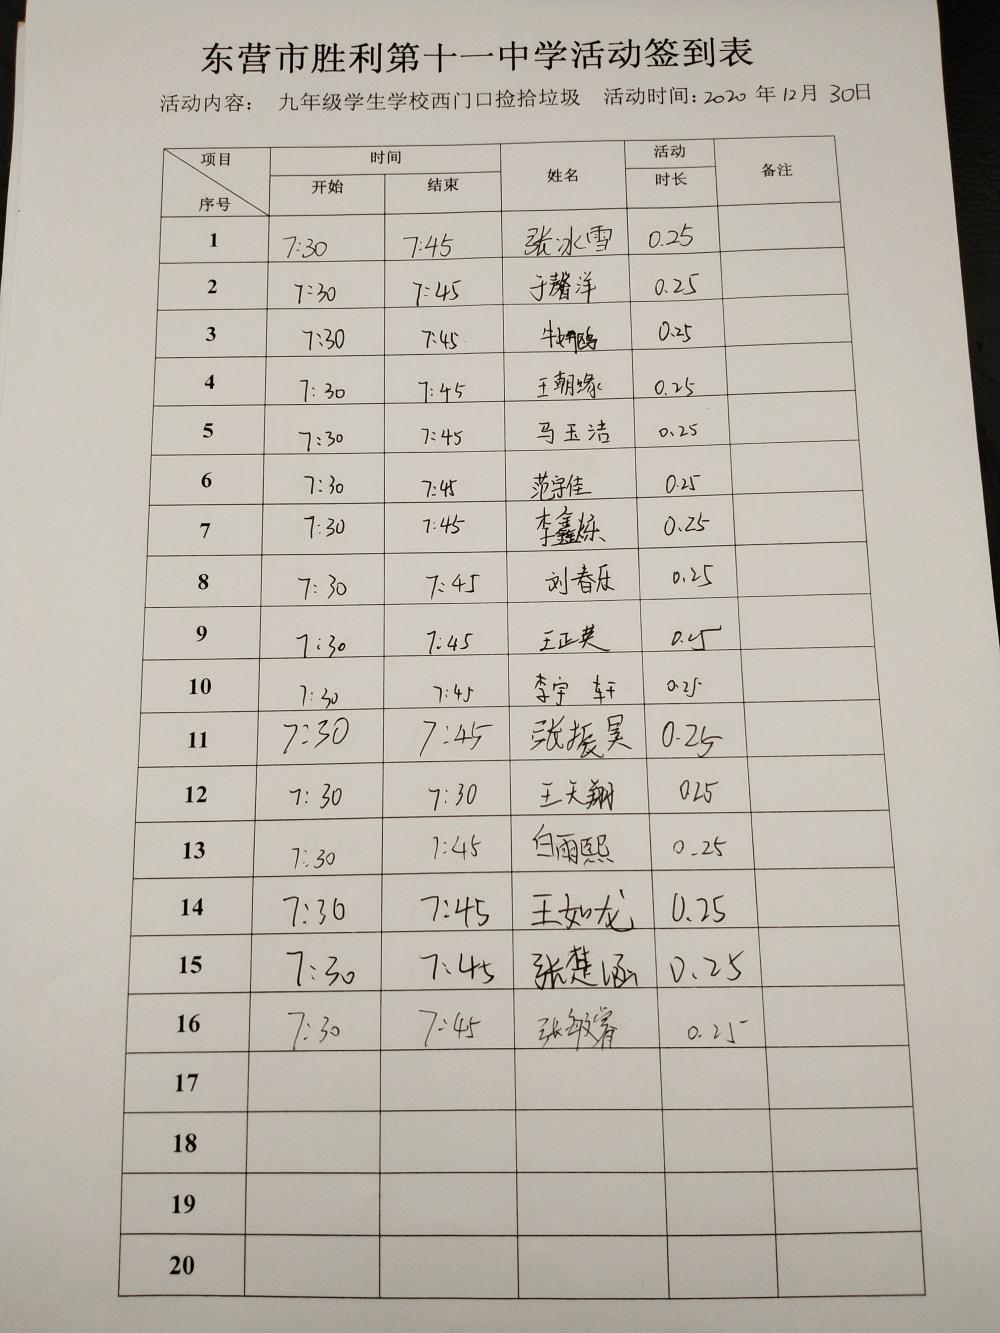 东营市胜利第十一中学活动签到表
活动内容: 九年级学生学校西门口捡拾垃圾 活动时间: 2020 年 12月 30日
项目 时间 姓名 活动 备注
序号 开始 结束 时长
1 7:30 7:45 张冰雪 0.25
2 7:30 7:45 于馨洋 0.25
3 7:30 7:45 0.25
4 7:30 7:45 王朝缘 0.25
5 7:30 7:45 马玉洁 0.25
6 7:30 7:45 范宇佳 0.25
7 7:30 7:45 李鑫烁 0.25
8 7:30 7:45 刘春乐 0.25
9 7:30 7:45 王正英 0.25
10 7:30 7:45 李宇轩 0.25
11 7:30 7:45 张振昊 0.25
12 7:30 7:30 王天翔 0.25
13 7:30 7:45 白雨熙 0.25
14 7:30 7:45 王如龙 0.25
15 7:30 7:45 张楚涵 0.25
16 7:30 7:45 张敏睿 0.25
17
18
19
20